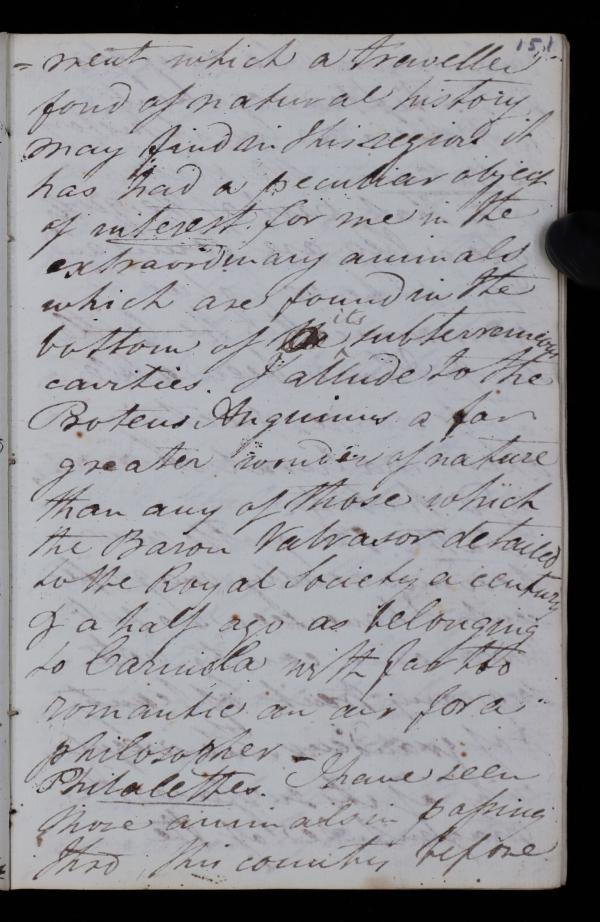 151
=ment which a traveller
fond of natural history
may find in this region it
has had a peculiar object
of interest for me in the
extraordinary animals
which are found in the
bottom of its subterraneous
cavities. I allude to the
Proteus Anguinus a far
greater wonder of nature
than any of those which
the Baron Valvasor detailed
to the Royal Society a century
& a half ago as belonging
to Carniola with far too
romantic an air for a
philosopher -
Philalethes. I have seen
these animals in passing
thro this country before